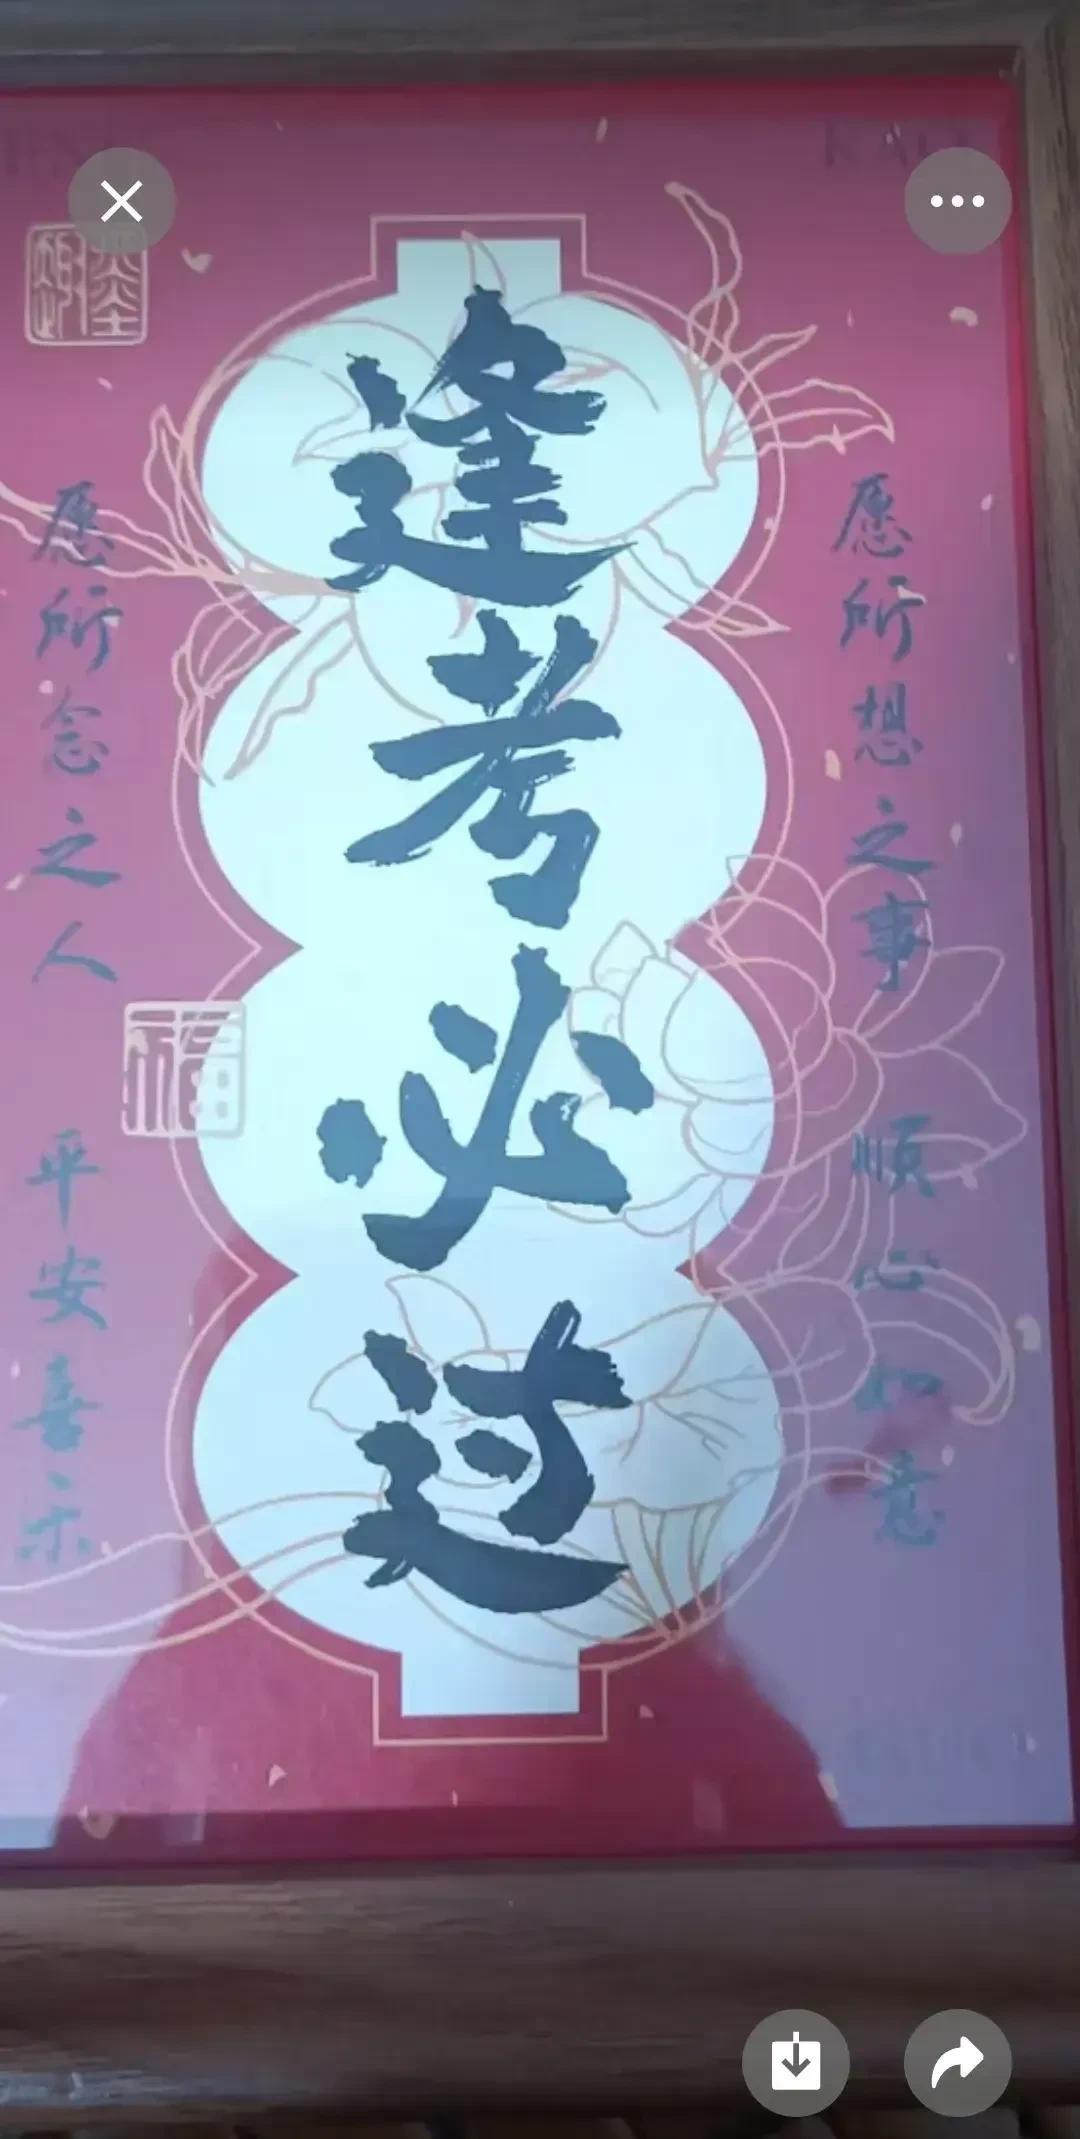 愿所想之事 顺心如意
逢考必过
福
愿所念之人 平安喜乐